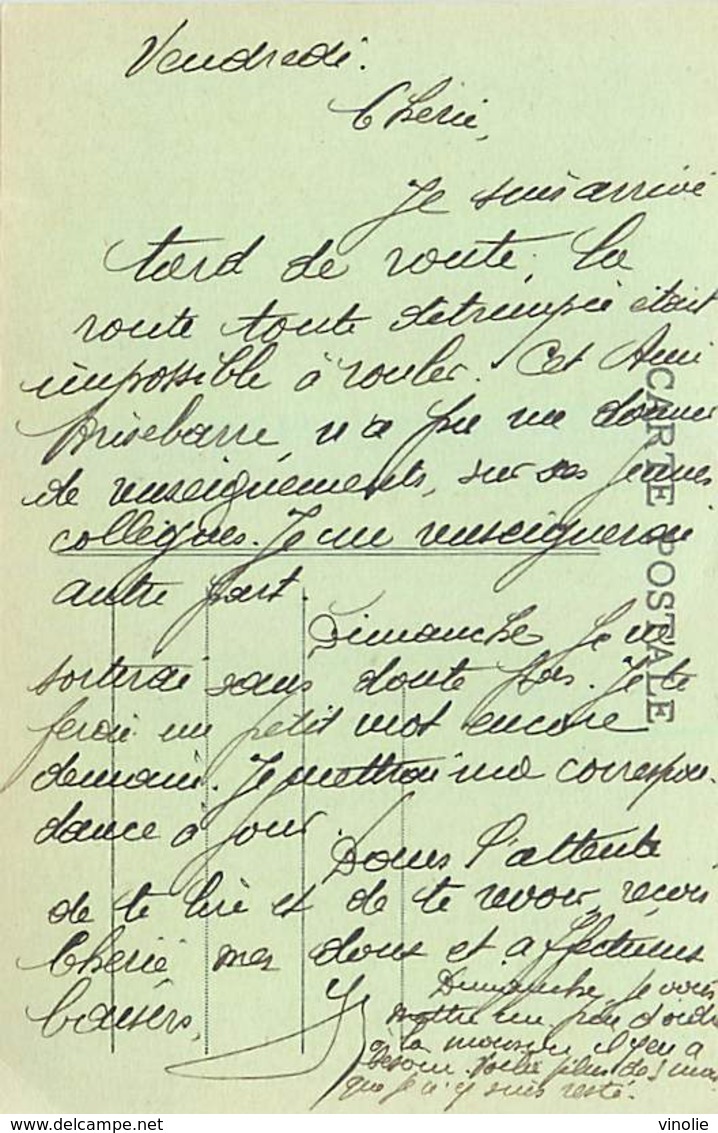 Vendredi.
Cherie,
Je suis arrivé
tard de route, la
route toute détrempée était
impossible à rouler. Cet Ami
Brisebarre, n'a pu me donner
de renseignements, sur ses jeunes
collègues. Je me renseignerai
autre part.
Dimanche je ne
sortirai sans doute pas. Je te
ferai un petit mot encore
demain. Je mettrai ma correspon-
dance à jour.
Dans l'attente
de te lire et de te revoir, reçois
Cherie mes doux et affectueux
baisers.
Dimanche, je vais
mettre un peu d'ordre
à la maison il y en a
besoin. Voilà plus de mois
que je n'y suis resté.
CARTE POSTALE
delcampe.net
vinolie